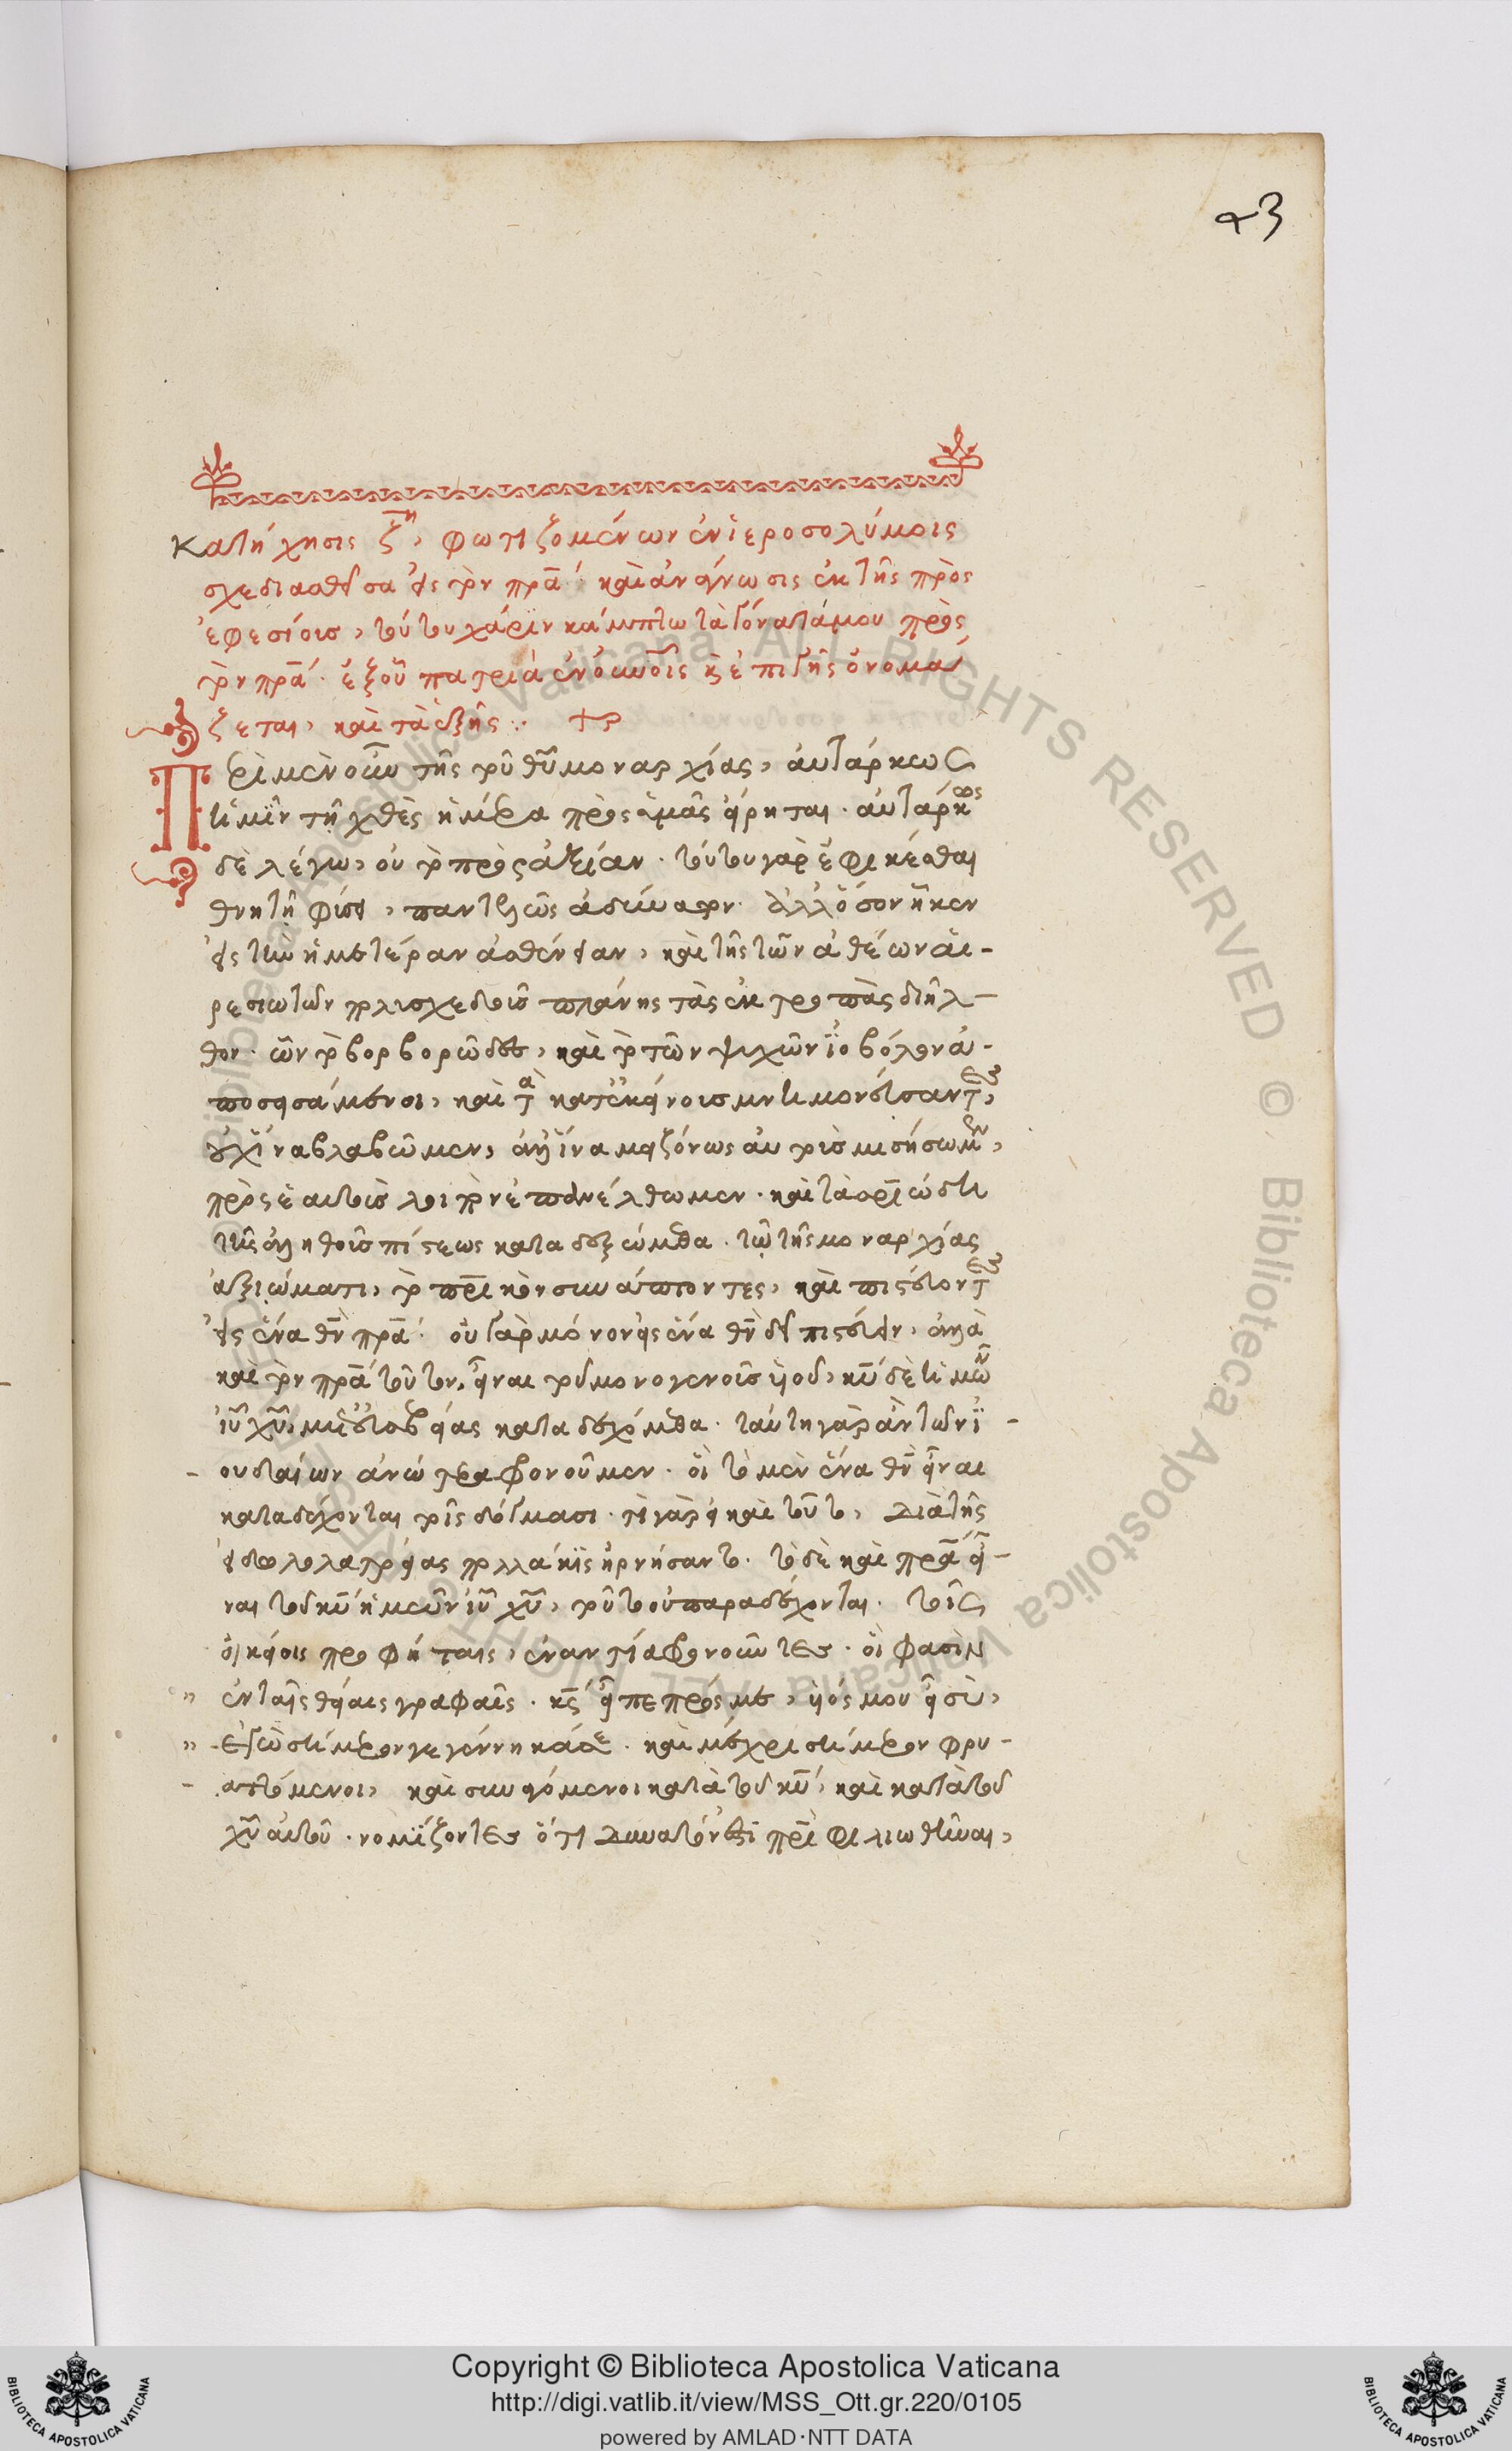 93
Κατήχησις ζη, φωτιζομένων ἐν ἱεροσολύμοις
σχεδιασθεῖσα εἰς τὸν πρα· καὶ ἀνάγνωσις ἐκ τῆς πρὸς
ἐφεσίοις, τούτου χάριν κάμπτω τὰ γόνατά μου πρὸς
τὸν πρα· ἐξ οὗ πατριὰ ἐν οὐνοῖς κ ἐπι γῆς ὀνομά
ζεται, καὶ τὰ ἑξῆς
Περὶ μὲν οὖν τῆς τοῦ θυ μοναρχίας, αὐτάρκως
ἡμῖν τῇ χθὲς ἡμέρα πρὸς ὑμᾶς εἴρηται. αὐτάρκως
δὲ λέγω, οὐ τὸ πρὸς ἀξίαν. τούτου γὰρ ἐφικέσθαι
θνητῇ φύσει, παντελῶς ἀδύνατον. ἀλλ' ὅσον ἧκεν
εἰς τὴν ἡμετέραν ἀσθένειαν, καὶ τῆς τῶν ἀθέων αἱ-
ρεσιωτῶν πολυσχεδοῦς πλάνης τὰς ἐκτροπὰς διῆλ-
θον. ὧν τὸ βορβορῶδες, καὶ τὸ τῶν ψυχῶν ἰοβόλον ἀ-
ποσεισάμενοι, καὶ τὰ κατ' ἐκείνοις μνημονεύσαντες,
οὐχ ἵνα βλαβῶμεν, ἀλλ' ἵνα μειζόνως αὐτοὺς μισήσωμεν,
πρὸς ἑαυτοὺς λοιπὸν ἐπανέλθωμεν. καὶ τὰ σριώδη
τῆς ἀληθοῦς πίστεως καταδεξώμεθα. τῷ τῆς μοναρχίας
ἀξιώματι, τὸ πρικὸν συνάπτοντες, καὶ πιστεύοντες
εἰς ἕνα θν πρα· οὐ γὰρ μόνον εἰς ἕνα θν δεῖ πιστεύειν, ἀλλὰ
καὶ τὸν πρα τοῦτον, εἶναι τοῦ μονογενοῦς υἱοῦ, κυ δὲ ἡμῶν
ιυ χυ, μετ' εὐσεβείας καταδεχόμεθα. ταύτη γὰρ ἂν τῶν ἰ-
ουδαίων ἀνώτερα φρονοῦμεν. οἳ τὸ μὲν ἕνα θν εἶναι
καταδέχονται τοῖς δόγμασι. τί γὰρ εἰ καὶ τοῦτο, διὰ τῆς
εἰδωλολατρείας πολλάκις ἠρνήσαντο. τὸ δὲ καὶ πρα εἶ-
ναι τοῦ κυ ἡμῶν ιυ χυ, τοῦτο οὐ παραδέχονται. τοῖς
οἰκείοις προφήταις, ἐναντία φρονοῦντες. οἳ φασὶν
" ἐν ταῖς θείαις γραφαῖς. κς εἶπε πρός με, υἱός μου εἶ σὺ,
" ἐγὼ σήμερον γεγέννηκά σε. καὶ μέχρι σήμερον φρυ-
αττόμενοι, καὶ συναγόμενοι κατὰ τοῦ κυ, καὶ κατὰ τοῦ
χυ αὐτοῦ. νομίζοντες ὅτι δυνατόν ἐστι πρι φιλιωθῆναι,
Copyright © Biblioteca Apostolica Vaticana
http://digi.vatlib.it/view/MSS_Ott.gr.220/0105
powered by AMLAD·NTT DATA
BIBLIOTECA APOSTOLICA VATICANA
BIBLIOTECA APOSTOLICA VATICANA